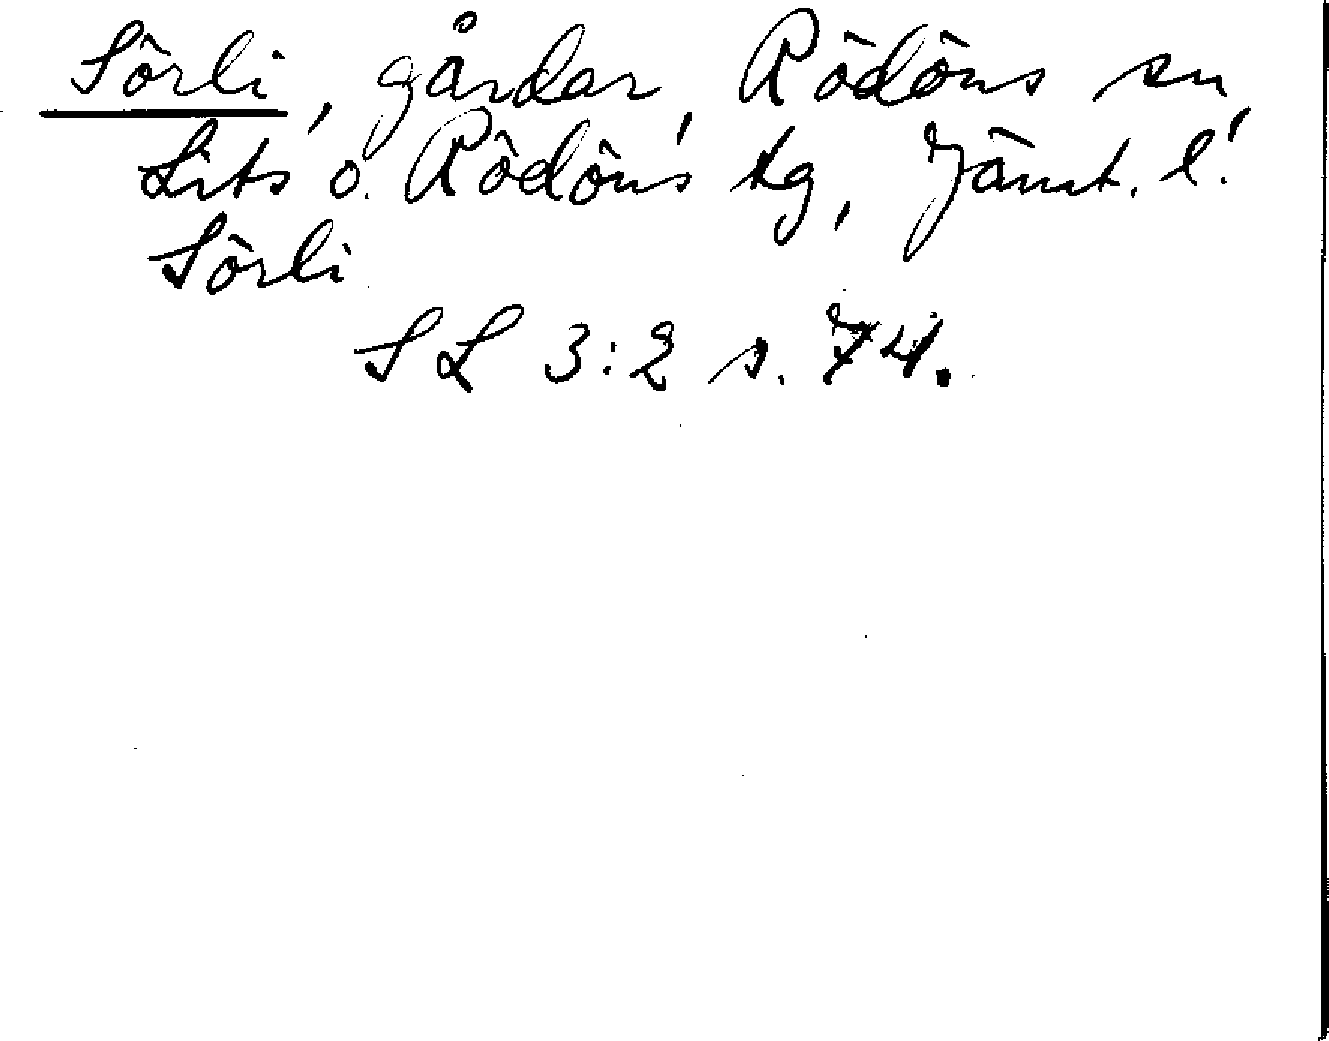 Sörli, gårdar, Rödöns sn,
Lits o. Rödöns tg, Jämt. l.
Sörli
SL 3:2 s. 74.